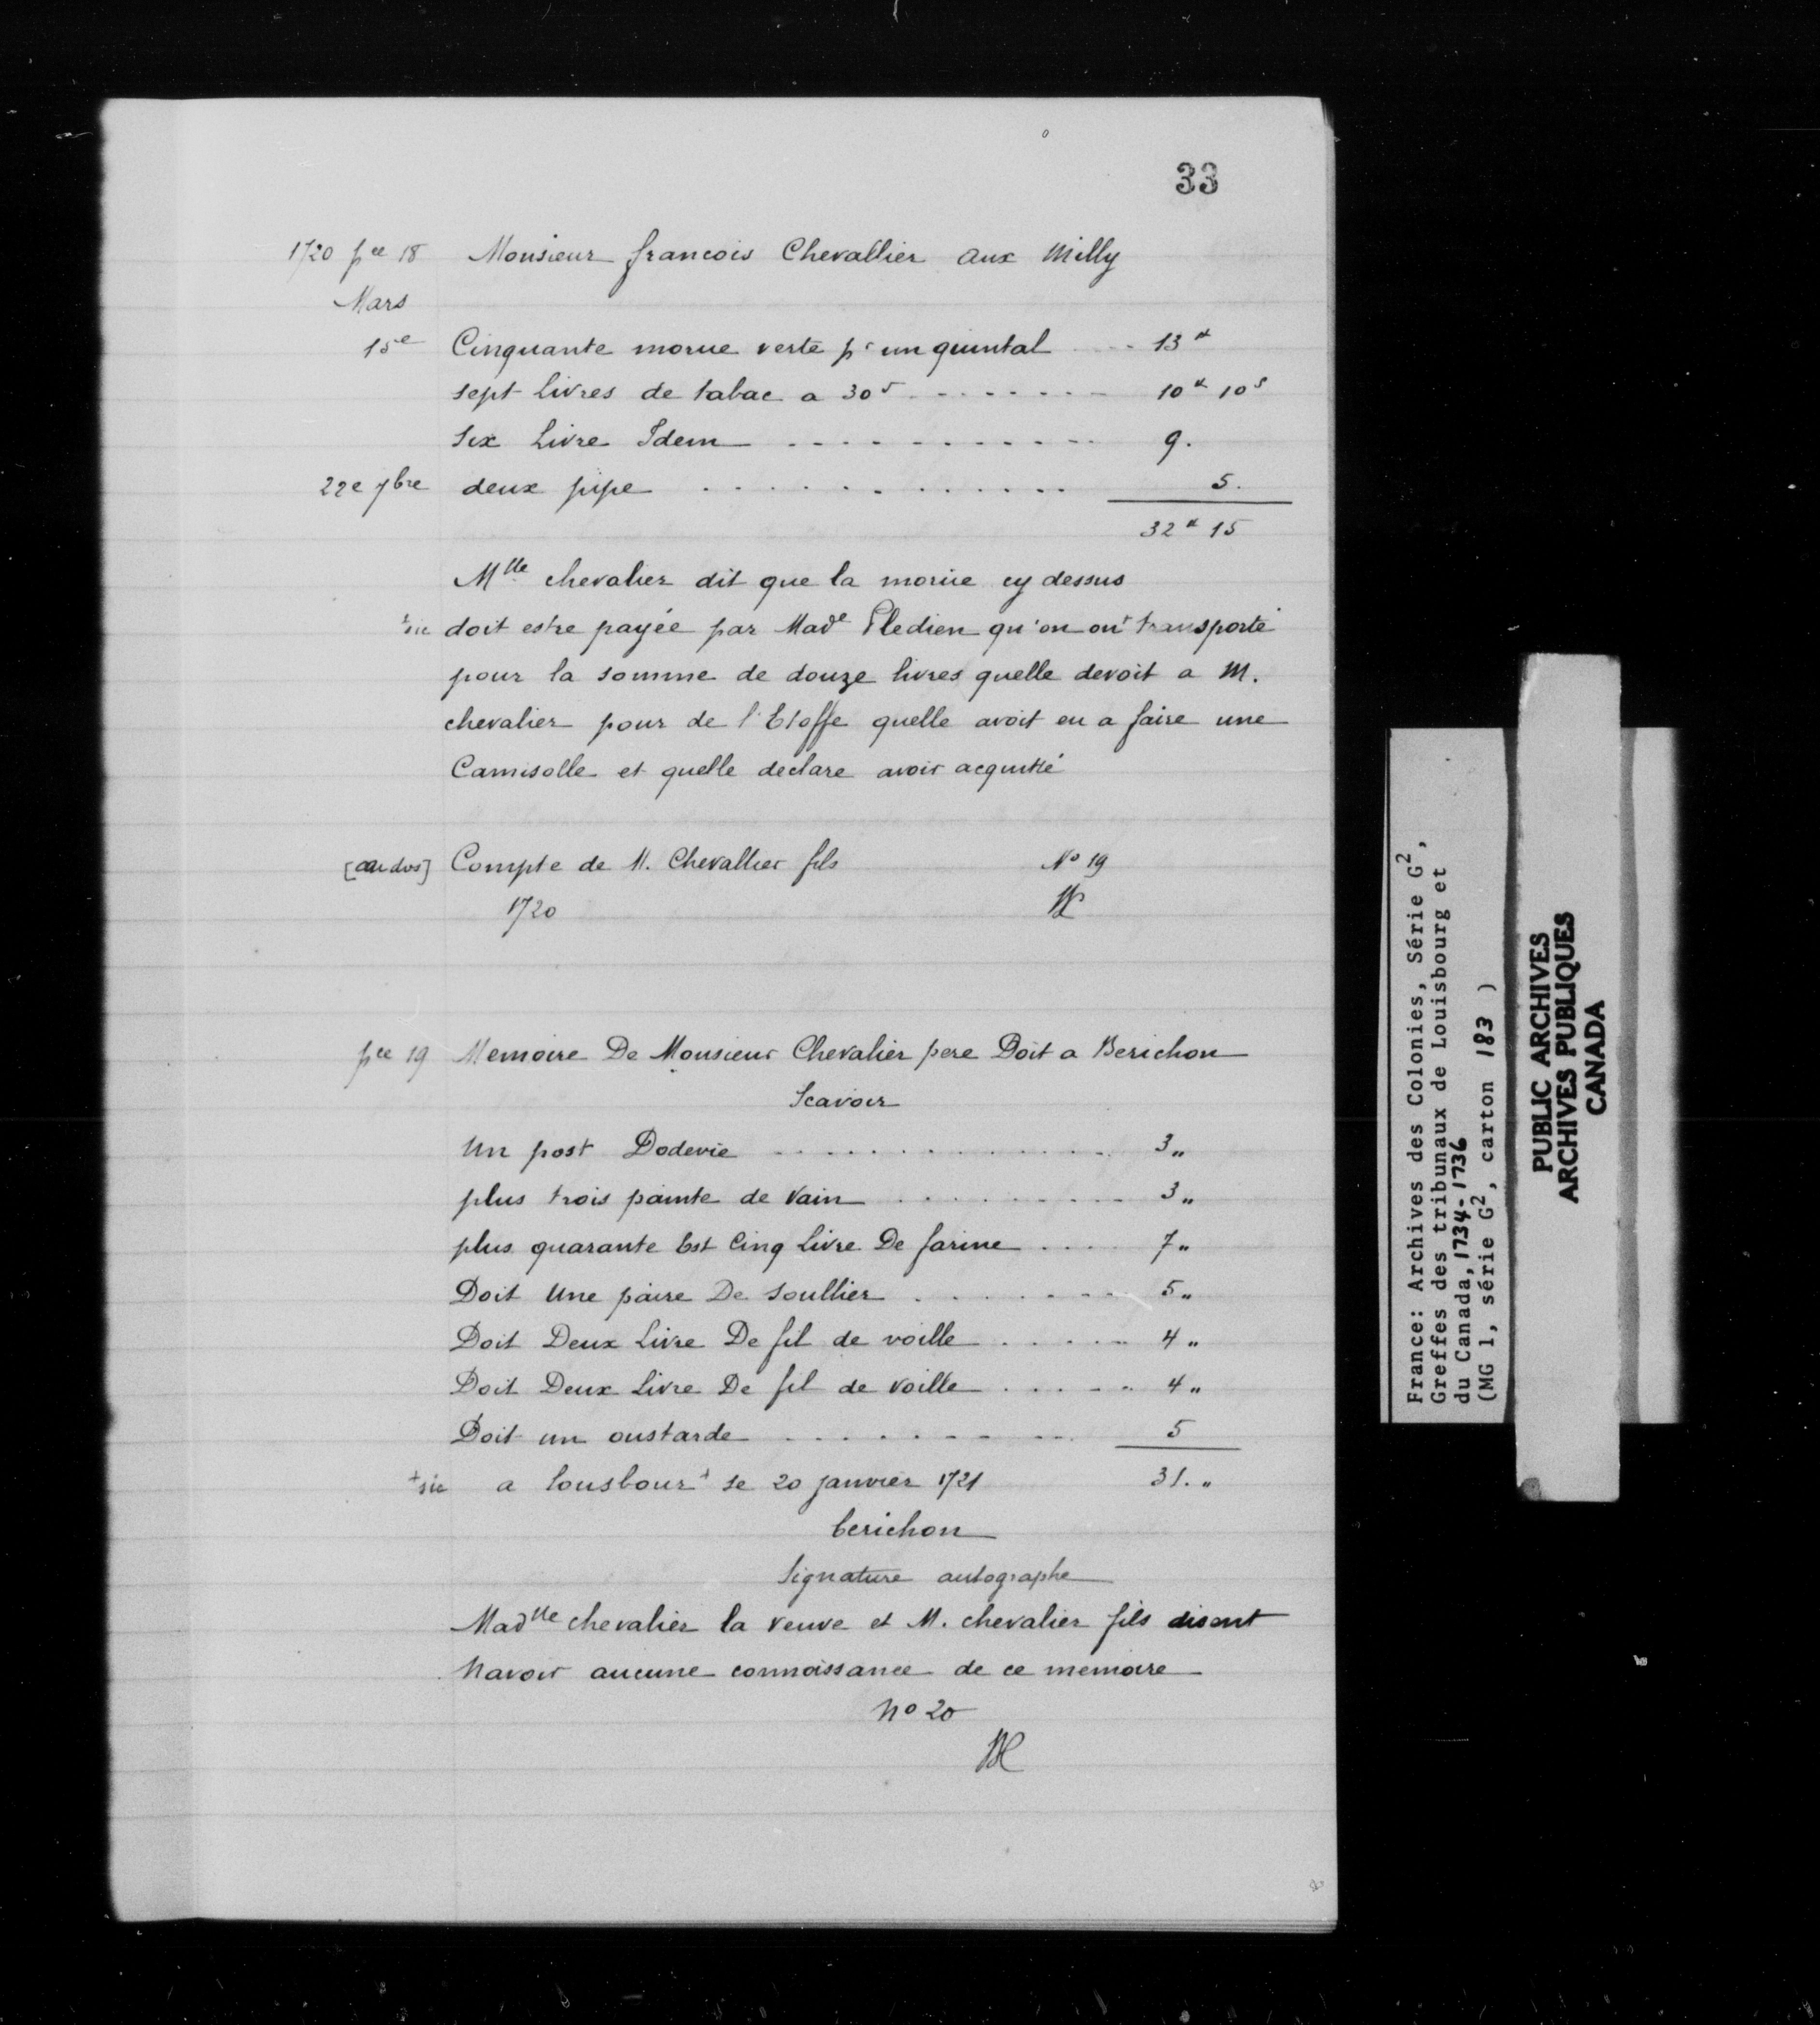 33
1720 pce 18 Monsieur francois Chevallier aux Milly
Mars
15e Cinquante morue verte pr un quintal .... 13#
sept livres de tabac a 30s ........ 10# 10s
Six Livre Idem ........... 9.
22e 7bre deux pipe ............. 5.
32# 15
Mlle chevalier dit que la morue cy dessus
+sic doit estre payée par Made Pledien qu'on on+ transporté
pour la somme de douze livres quelle devoit a M.
chevalier pour de l'Etoffe quelle avoit eu a faire une
Camisolle et quelle declare avoir acquitté
[au dos] Compte de M. Chevallier fils No 19
1720
pce 19 Memoire De Monsieur Chevalier pere Doit a Berichon
Scavoir
Un post Dodevie ............... 3 "
plus trois painte de Vain .......... 3 "
plus quarante Est Cinq Livre De farine .... 7 "
Doit Une paire De Soullier ......... 5 "
Doit Deux Livre De fil de voille ...... 4 "
Doit Deux Livre De fil de Voille ...... 4 "
Doit un oustarde .......... 5
+sic a Lousbour+ se 20 janvier 1721 31. "
berichon
Signature autographe
Madlle chevalier la veuve et M. chevalier fils disent
Navoir aucune connoissance de ce memoire
No 20
France: Archives des Colonies, Série G2,
Greffes des tribunaux de Louisbourg et
du Canada, 1734-1736
(MG 1, série G2, carton 183 )
PUBLIC ARCHIVES
ARCHIVES PUBLIQUES
CANADA